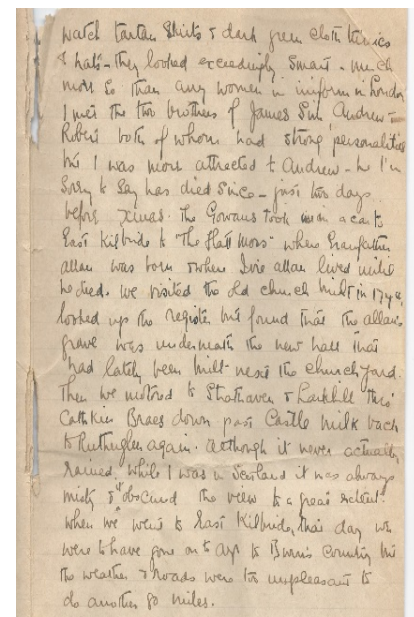 watch tartan Skirts & dark green cloth tunics
& hats - they looked exceedingly Smart - much
more so than any women in uniform in London
I met the two brothers of James Sim, Andrew &
Robert both of whom had strong personalities
but I was more attracted to Andrew - he I'm
Sorry to Say has died since - just two days
before Xmas. The Gowans took me in a car to
East Kilbride to "The Flatt Moss" where Grandfather
Allan was born & where Allan lived until
he died. We visited the old church built in 1774,
looked up the register but found that the Allan
grave was underneath the new hall that
had lately been built next the churchyard.
Then we motored to Strathaven & Larkhill thro'
Cathkin Braes down past Castle Milk back
to Rutherglen again. Although it never actually
rained while I was in Scotland it was always
misty & it obscured the view to a great extent.
When we went to East Kilbride, that day we
were to have gone on to Ayr to Burns Country but
the weather & roads were too unpleasant to
do another 80 miles.